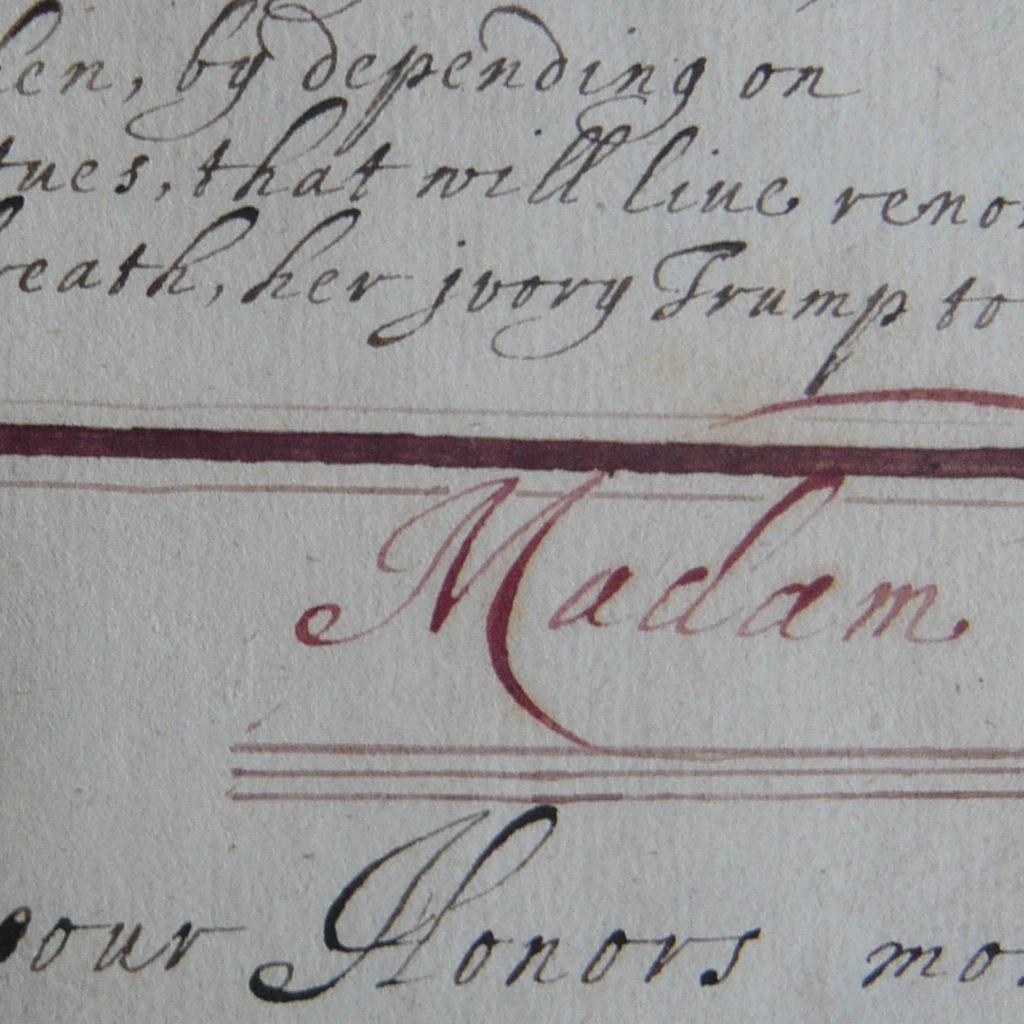 hen, by depending on
tues, that will liue renow
reath, her jvory Trump to
Madam
your Honors mo